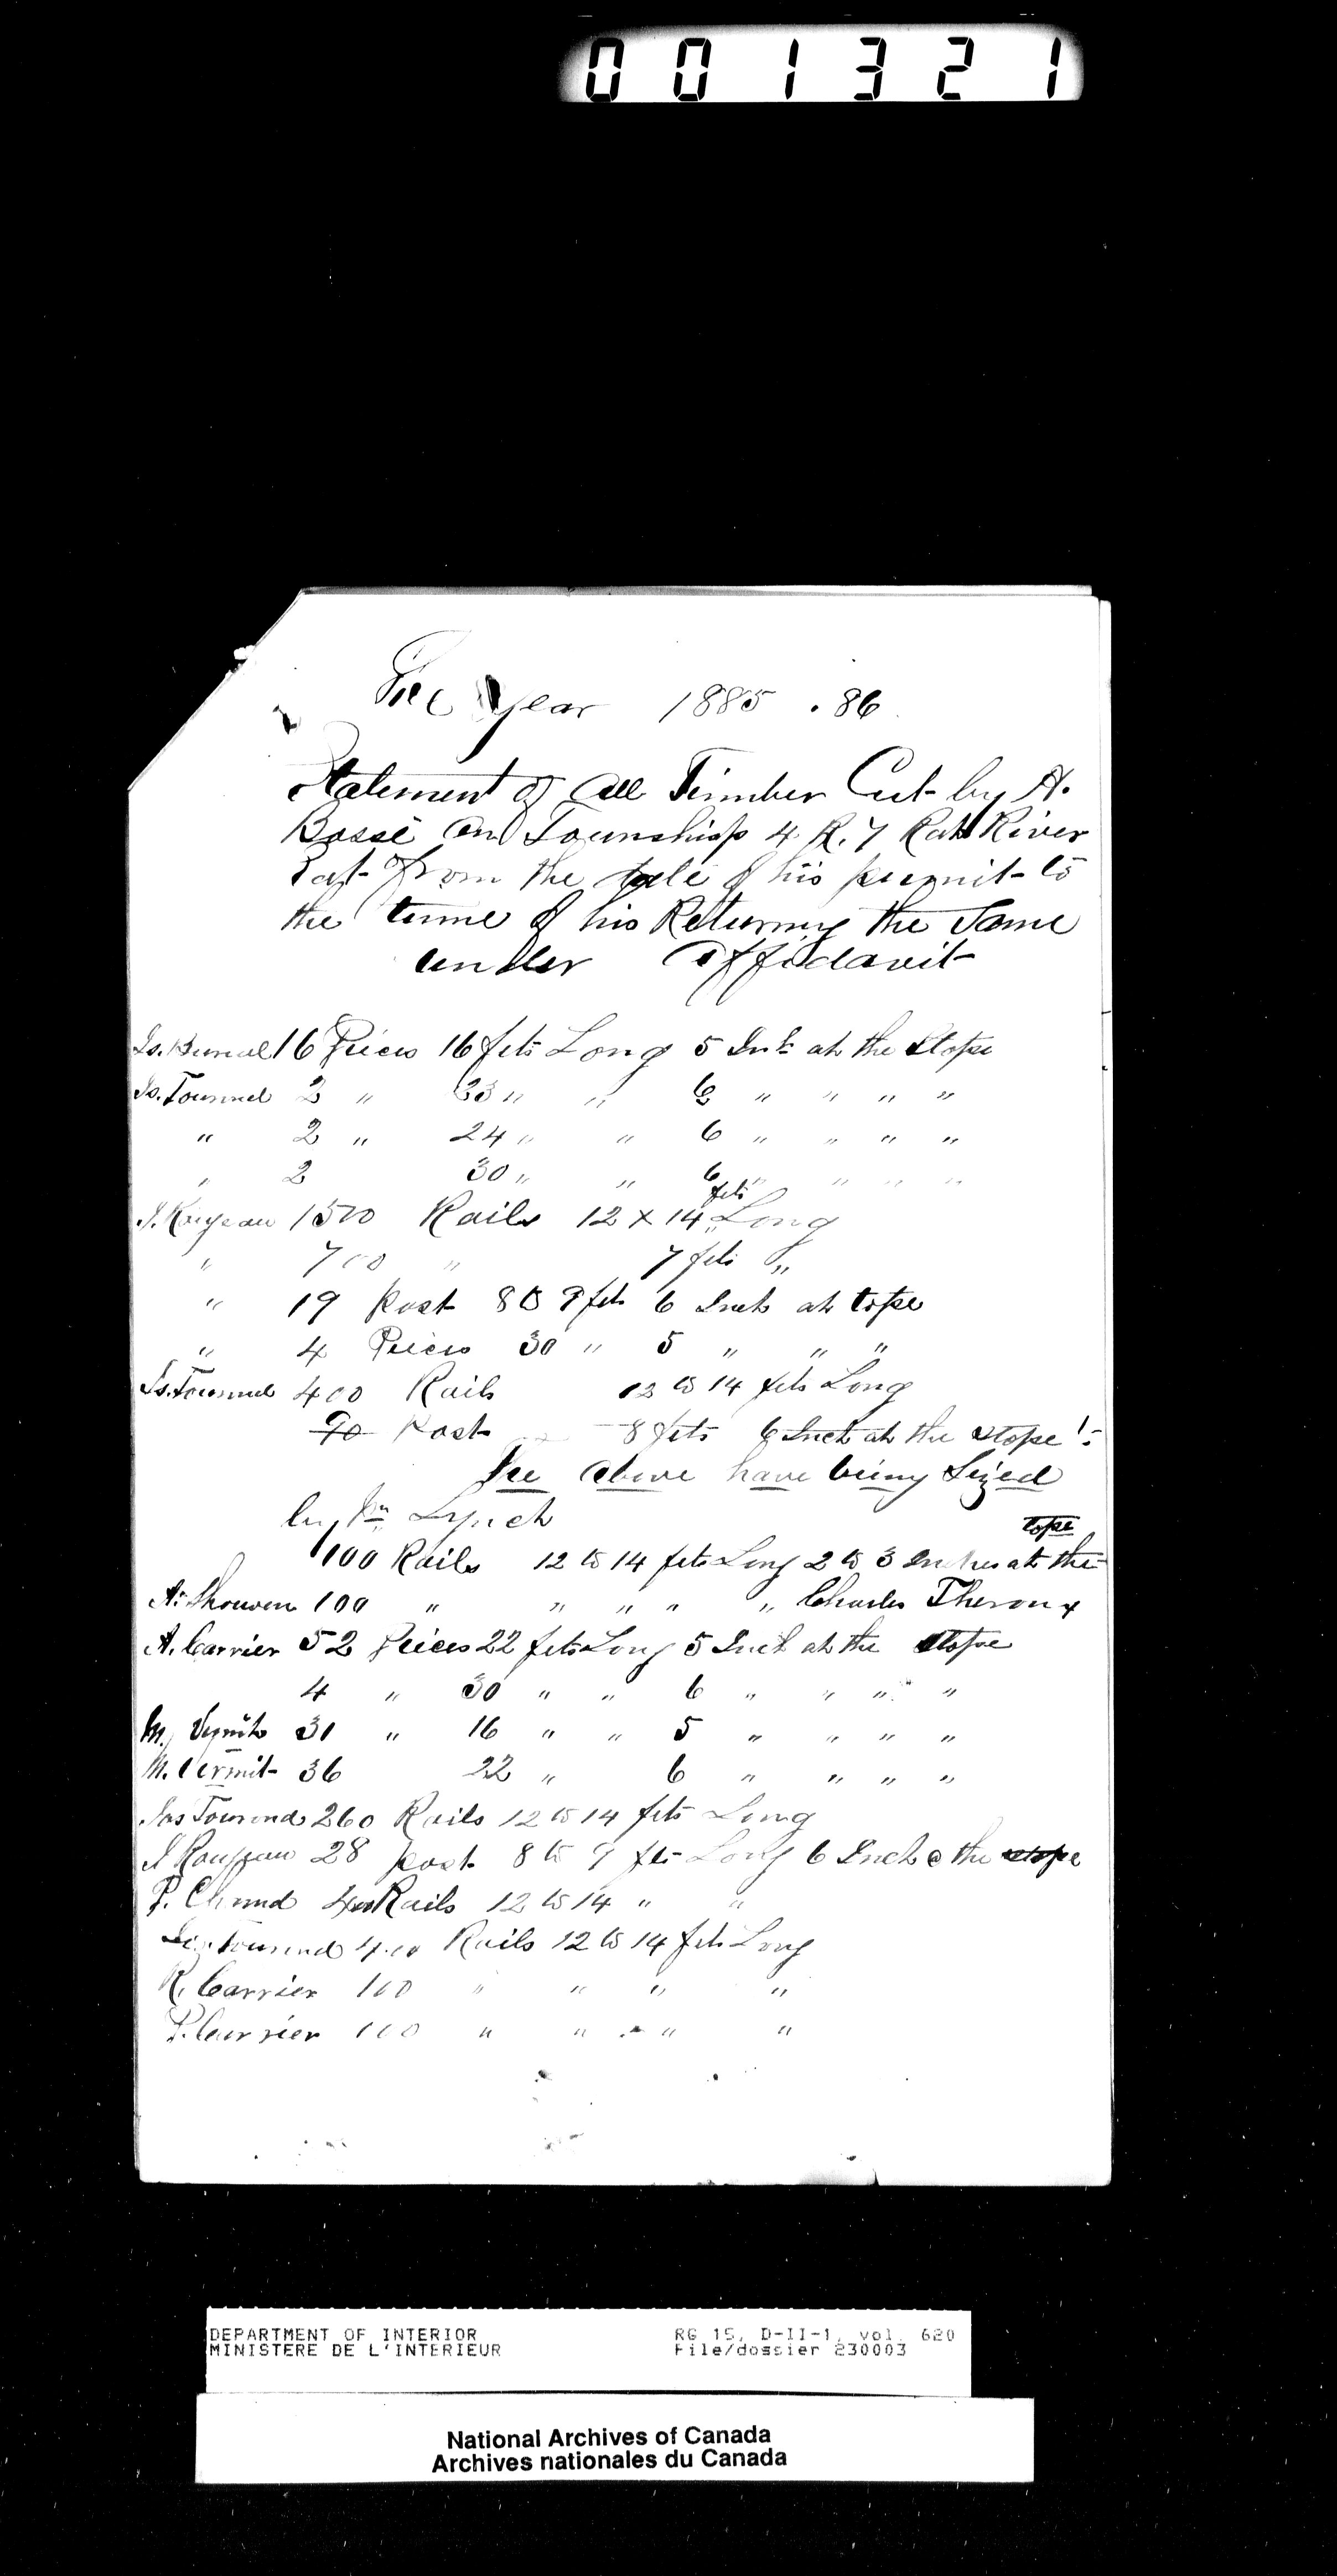 001321
The Year 1885 . 86
Statement of all Timber Cut by A.
Bossé on Township 4 R. 7 Rat River
East from the date of his permit to
the time of his Returning the Same
under affidavit
16 Pieces 16 fets Long 5 Inh at the Stope
Is. Tourund 2 " 33 " " 6 " " " "
" 2 " 24 " " 6 " " " "
" 2 30 " " 6 " " " "
1500 Rails 12 x 14 fets Long
" 700 " 7 fets "
" 19 Post 8 to 9 fets 6 Inch at tope
" 4 Pieces 30 " 5 " " "
400 Rails 12 to 14 fets Long
90 Post 8 fets 6 Inch at the stope
The above have being Seized
by Mr Lynch
100 Rails 12 to 14 fets Long 2 to 3 Inches at the tope
100 " " " " " Charles Theroux
A. Carrier 52 Pieces 22 fets Long 5 Inch at the stope
4 " 30 " " 6 " " " "
31 " 16 " " 5 " " " "
M. 36 22 " 6 " " " "
Jas Tourond 260 Rails 12 to 14 fets Long
28 post 8 to 9 fets Long 6 Inch @ the stope
P. 400 Rails 12 to 14 " "
400 Rails 12 to 14 fets Long
R. Carrier 100 " " " "
P. Carrier 100 " " " "
DEPARTMENT OF INTERIOR RG 15, D-II-1, vol. 620
MINISTERE DE L'INTERIEUR File/dossier 230003
National Archives of Canada
Archives nationales du Canada